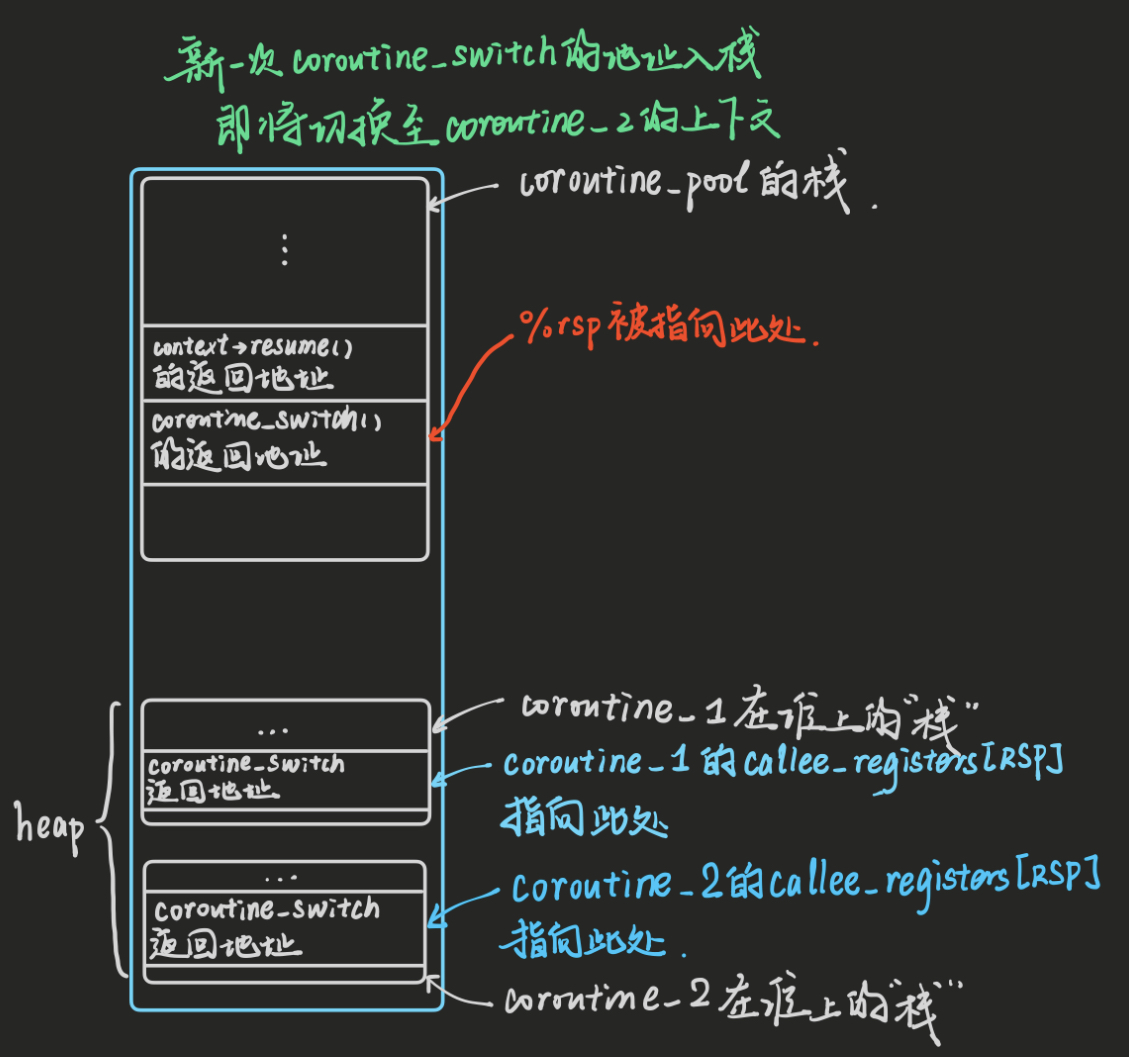 新一次coroutine_switch的地址入栈
即将切换至coroutine_2的上下文
coroutine_pool的栈.
⋮
%rsp被指向此处.
context→resume()
的返回地址
coroutine_switch()
的返回地址
heap
coroutine_1在堆上的"栈"
...
coroutine_1的callee_registers[RSP]
指向此处
coroutine_switch
返回地址
coroutine_2的callee_registers[RSP]
指向此处.
...
coroutine_switch
返回地址
coroutine_2在堆上的"栈"